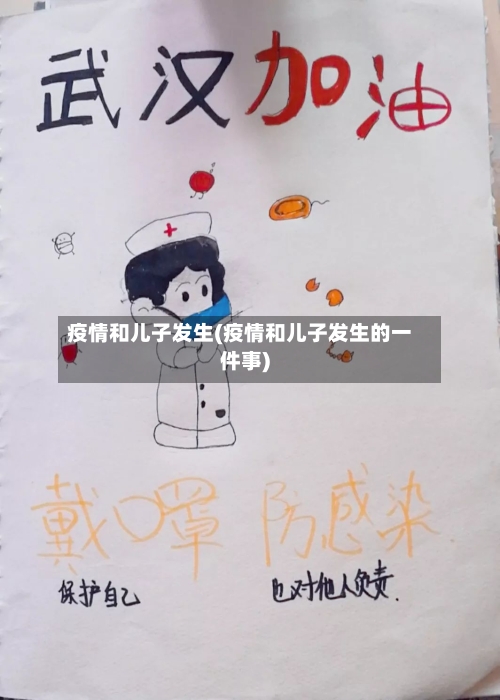 武汉加油
疫情和儿子发生(疫情和儿子发生的一
件事)
戴口罩 防感染.
保护自己 也对他人负责.